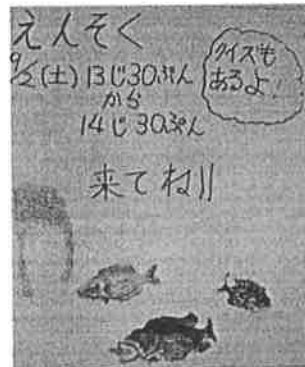 えんそく
9/2(土) 13じ30ぷん
から
14じ30ぷん
クイズも
あるよ!
来てね!!